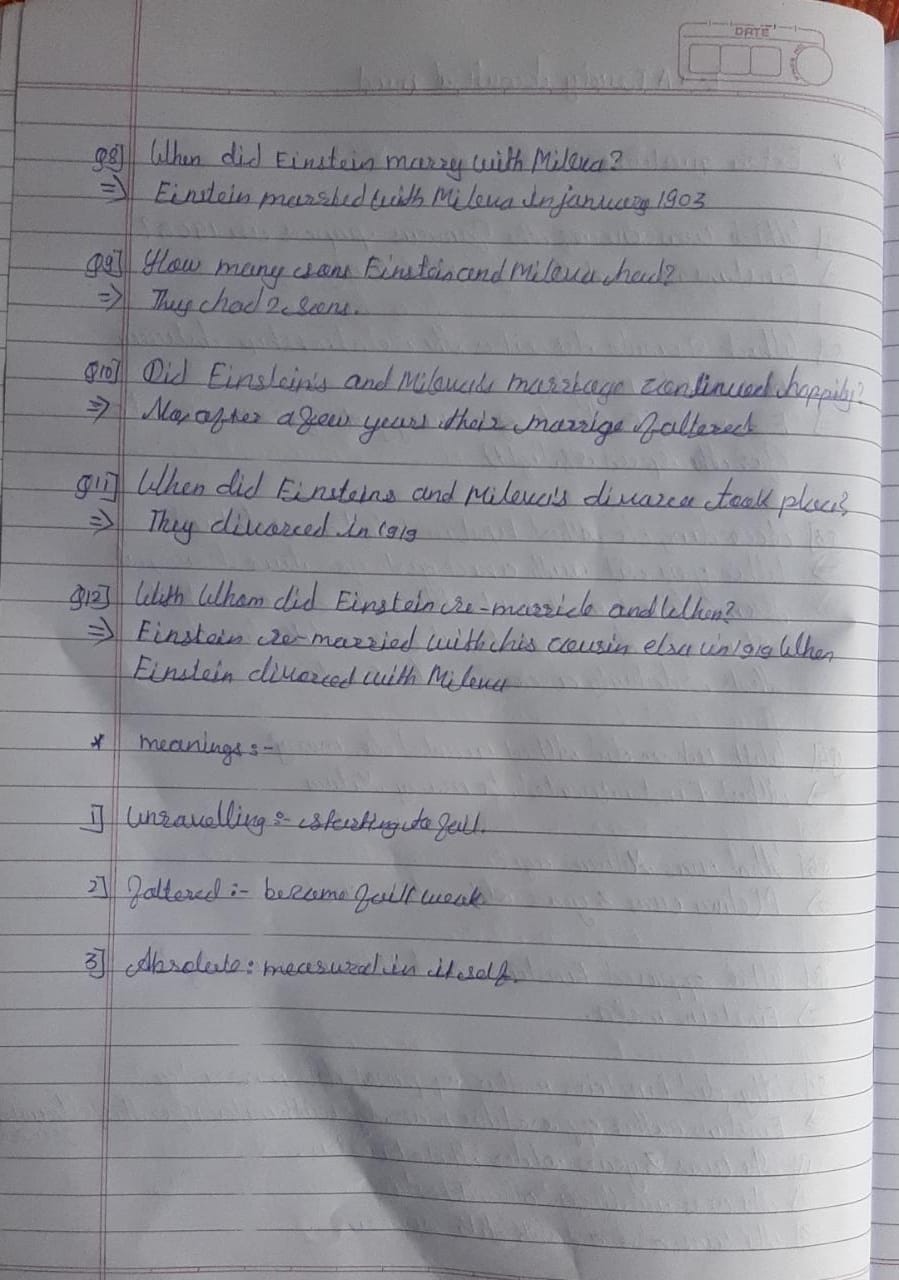 DATE
Q8] When did Einstein marry with Mileva?
⇒ Einstein married with Mileva In january 1903
Q9] How many sons Einstein and Mileva had?
⇒ They had 2 sons.
Q10] Did Einstein's and Mileva's marriage continued happily?
⇒ No, after a few years their marrige faltered
Q11] When did Einsteins and Mileva's divorce took place?
⇒ They divorced in 1919
Q12] With Whom did Einstein re-married and When?
⇒ Einstein re-married with his cousin elsa in 1919 When
Einstein divorced with Mileva
* meanings :-
1] Unravelling :- starting to fall.
2] faltered :- became weak
3] Absolute : measured in itself.